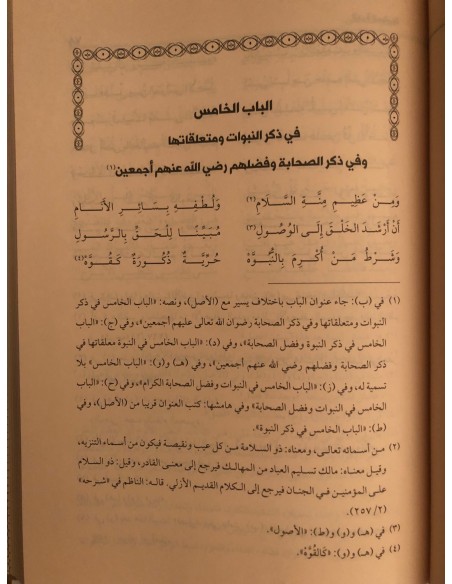 الباب الخامس
في ذكر النبوات ومتعلقاتها
وفي ذكر الصحابة وفضلهم رضي الله عنهم أجمعين(١)
وَمِنْ عَظِيمِ مِنَّةِ السَّلَامِ(٢) وَلُطْفِهِ بِسَائِرِ الأَنَامِ
أَنْ أَرْشَدَ الخَلْقَ إِلَى الوُصُولِ(٣) مُبَيِّنًا لِلْحَقِّ بِالرَّسُولِ
وَشَرْطُ مَنْ أُكْرِمَ بِالنُّبُوَّهْ حُرِّيَّةٌ ذُكُورَةٌ كَقُوَّهْ(٤)
(١) في (ب): جاء عنوان الباب باختلاف يسير مع (الأصل)، ونصه: «الباب الخامس في ذكر
النبوات ومتعلقاتها وفي ذكر الصحابة رضوان الله تعالى عليهم أجمعين»، وفي (ج): «الباب
الخامس في ذكر النبوة وفضل الصحابة»، وفي (د): «الباب الخامس في النبوة معلقاتها في
ذكر الصحابة وفضلهم رضي الله عنهم أجمعين»، وفي (هـ) و(و): «الباب الخامس» بلا
تسمية له، وفي (ز): «الباب الخامس في النبوات وفضل الصحابة الكرام»، وفي (ح): «الباب
الخامس في النبوات وفضل الصحابة» وفي هامشها: كتب العنوان قريبا من (الأصل)، وفي
(ط): «الباب الخامس في ذكر النبوة».
(٢) من أسمائه تعالى، ومعناه: ذو السلامة من كل عيب ونقيصة فيكون من أسماء التنزيه،
وقيل معناه: مالك تسليم العباد من المهالك فيرجع إلى معنى القادر، وقيل: ذو السلام
على المؤمنين في الجنان فيرجع إلى الكلام القديم الأزلي. قاله: الناظم في «شرحه»
(٢/ ٢٥٧)
(٣) في (هـ) و(و) و(ط): «الأصول».
(٤) في (هـ) و(و): «كَالقُوَّهْ».